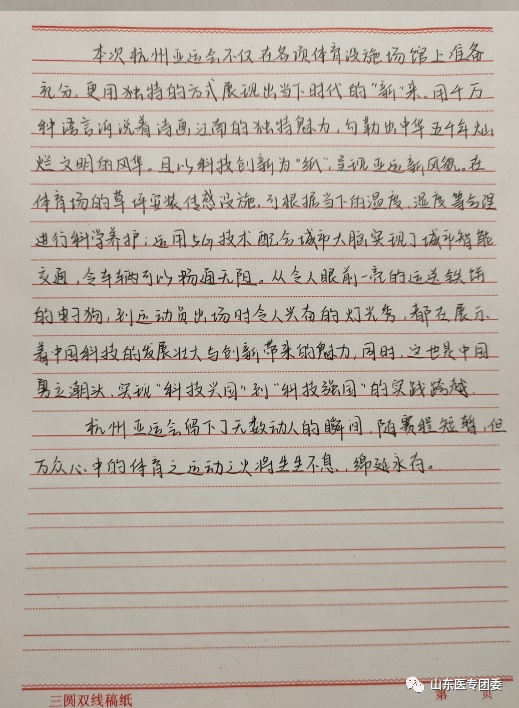 本次杭州亚运会不仅在各项体育设施场馆上准备
充分,更用独特的方式展现出当下时代的“新”来。用千万
种语言诉说着诗画江南的独特魅力,勾勒出中华五千年灿
烂文明的风华。且以科技创新为“纸”,呈现亚运新风貌。在
体育场的草坪安装传感设施,可根据当下的温度、湿度等合理
进行科学养护;运用5G技术配合城市大脑实现了城市智能
交通,令车辆可以畅通无阻。从令人眼前一亮的运送铁饼
的电子狗,到运动员出场时令人兴奋的灯光秀,都在展示
着中国科技的发展壮大与创新带来的魅力,同时,这也是中国
勇立潮头,实现“科技兴国”到“科技强国”的实践跨越。
杭州亚运会留下了无数动人的瞬间,随赛程短暂,但
万众心中的体育之运动之火将生生不息,绵延永存。
三圆双线稿纸
第 页
山东医专团委